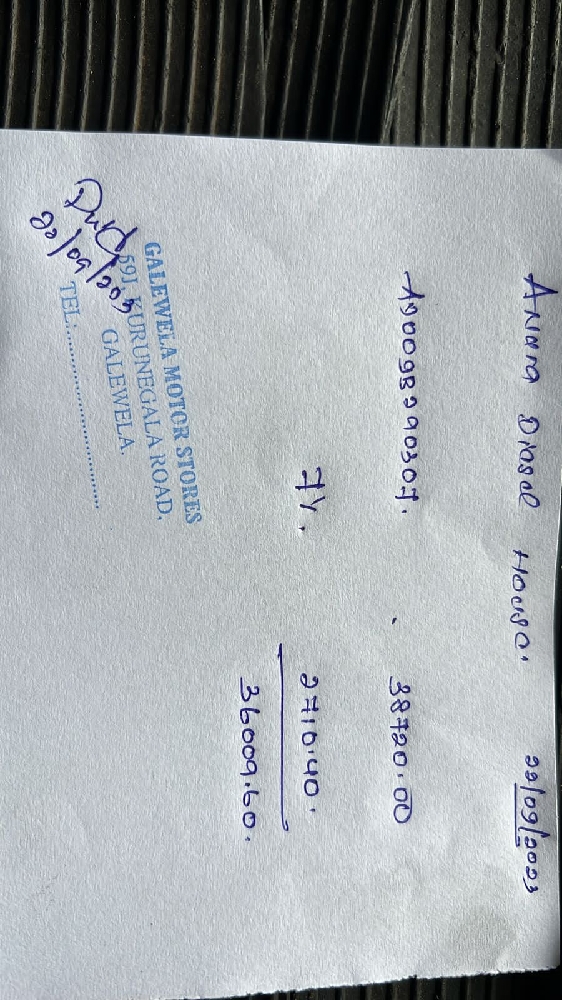 Anura Diesel House. 22/09/2023
1900SB290307. 38720.00
7%. 2710.40.
36009.60.
GALEWELA MOTOR STORES
59J, KURUNEGALA ROAD,
GALEWELA.
TEL: